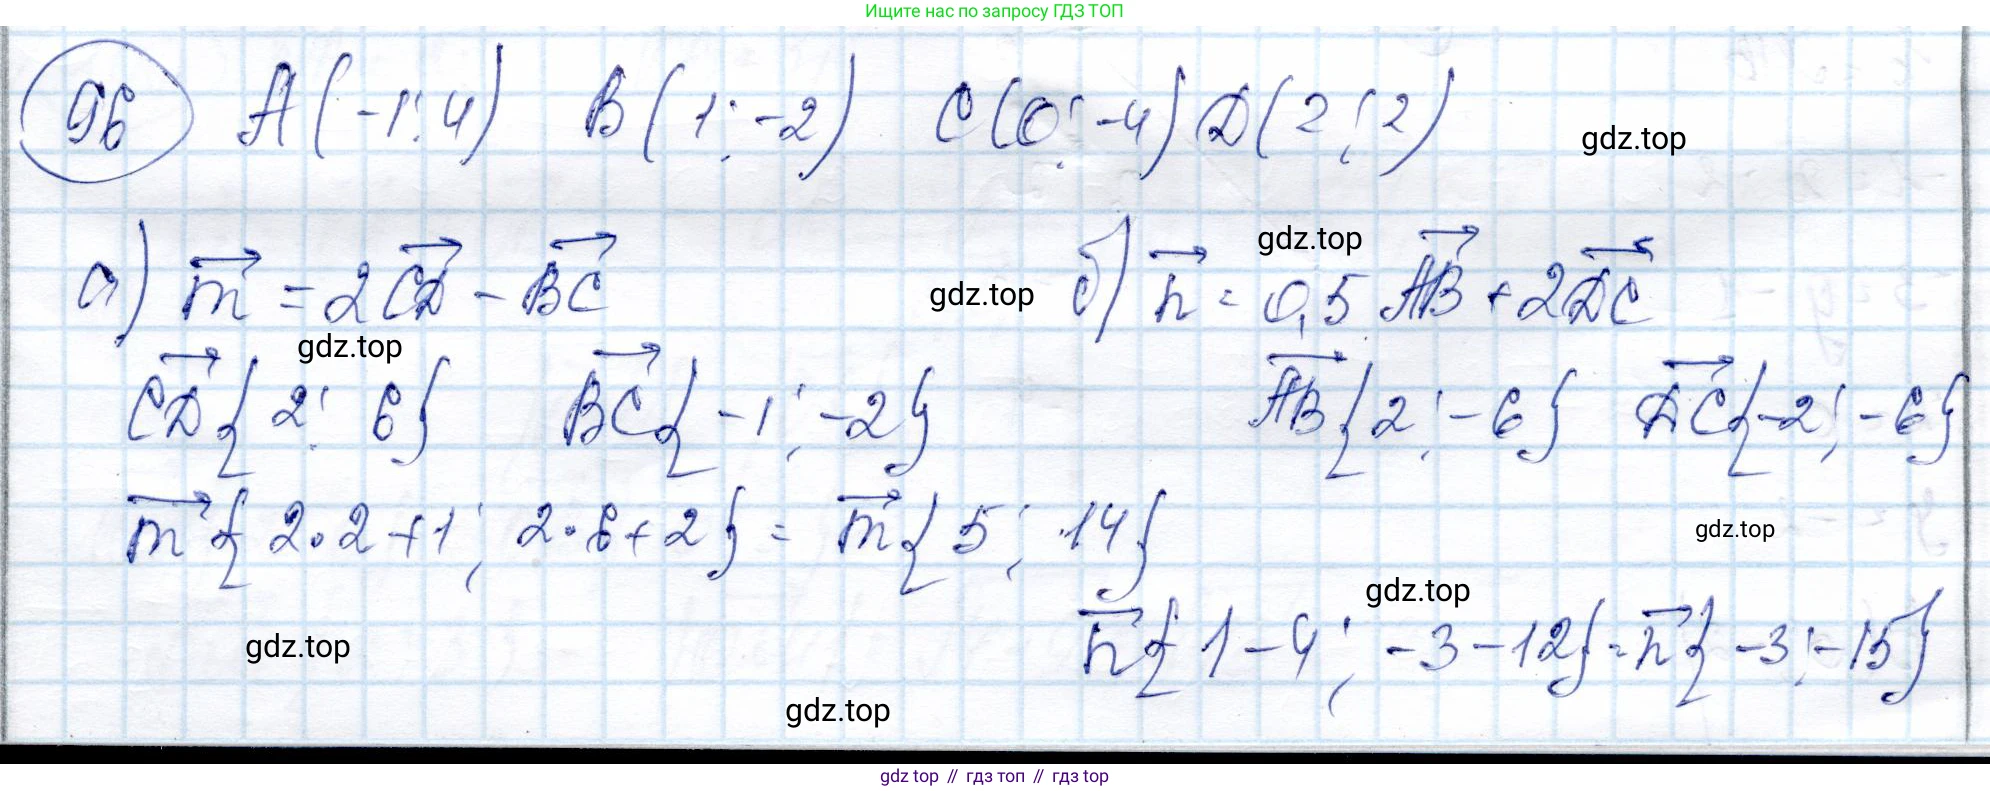 Ищите нас по запросу ГДЗ ТОП
96 A(-1; 4) B(1; -2) C(0; -4) D(2; 2)
gdz.top
а) m = 2CD - BC б) n = 0,5 AB + 2DC
gdz.top
gdz.top
gdz.top
CD{2; 6} BC{-1; -2} AB{2; -6} DC{-2; -6}
m{2·2+1; 2·6+2} = m{5; 14}
gdz.top
gdz.top
n{1-4; -3-12} = n{-3; -15}
gdz.top
gdz.top
gdz top // гдз топ // gdz top